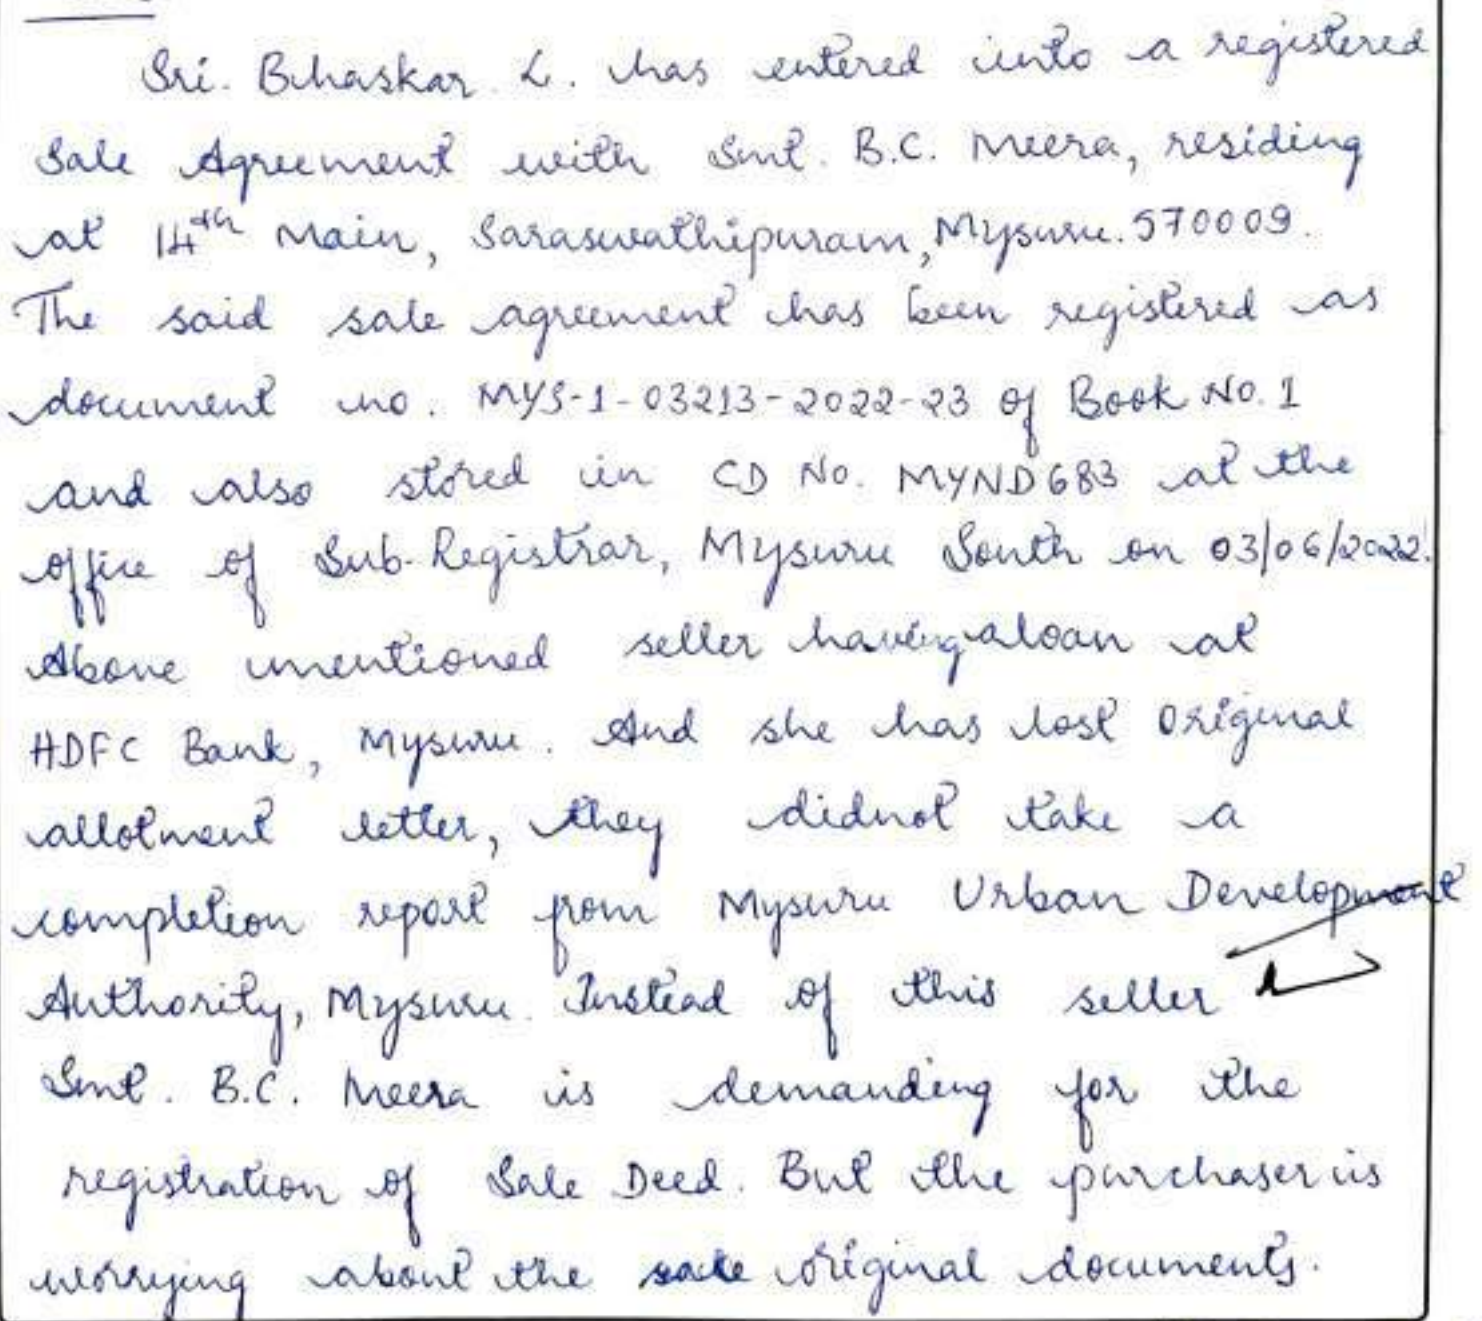 Sri. Bhaskar. L. has entered into a registered
Sale Agreement with Smt. B.C. Meera, residing
at 14th Main, Saraswathipuram, Mysuru. 570009.
The said sale agreement has been registered as
document no. MYS-1-03213-2022-23 of Book No. 1
and also stored in CD No. MYND683 at the
office of Sub-Registrar, Mysuru South on 03/06/2022.
Above mentioned seller having a loan at
HDFC Bank, Mysuru. And she has lost Original
allotment letter, they didnot take a
completion report from Mysuru Urban Development
Authority, Mysuru. Instead of this seller
Smt. B.C. Meera is demanding for the
registration of Sale Deed. But the purchaser is
worrying about the original documents.